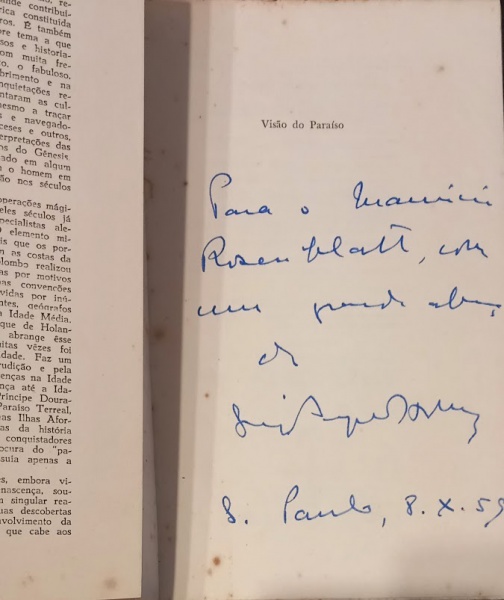 de, re-
aúde contribui-
rica constituída
ros. É também
bre tema a que
sos e historia-
om muita fre-
o, o fabuloso.
brimento e na
nquietações re-
ntaram as cul-
esmo a traçar
s e navegado-
ceses e outros,
erpretações das
os do Gênesis.
ado em algum
o homem em
ão nos séculos
operações mági-
eles séculos já
specialistas ale-
o elemento mi-
is que os por-
n as costas da
olombo realizou
as por motivos
as convenções
vidas por inú-
ntes, geógrafos
a Idade Média.
que de Holan-
abrange êsse
uitas vêzes foi
dade. Faz um
rudição e pela
enças na Idade
nça até a Ida-
Príncipe Doura-
Paraíso Terreal,
as Ilhas Afor-
tas da história
conquistadores
rocura do "pa-
ssuía apenas a
s, embora vi-
nascença, sou-
m singular rea-
uas descobertas
nvolvimento da
que cabe aos
Visão do Paraíso
Para o Maurício
Rosenblatt, com
um grande abraço
de
S. Paulo, 8.X.59